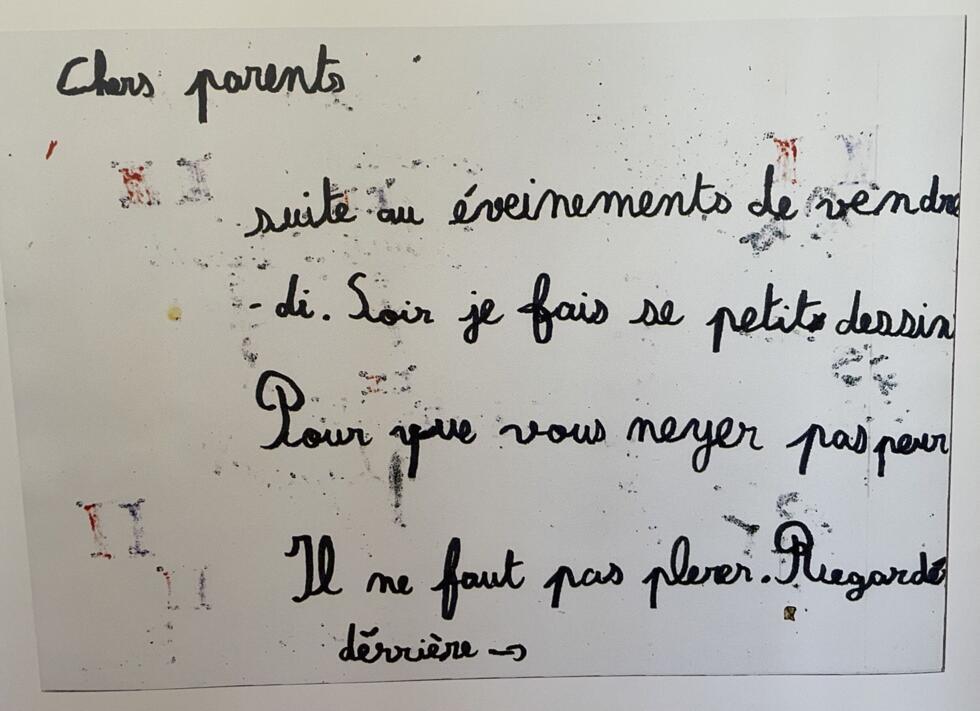 Chers parents
suite au éveinements de vendre
-di. Soir je fais se petit dessin
Pour que vous neyer pas peur
Il ne faut pas plerer. Regardé
dérrière →